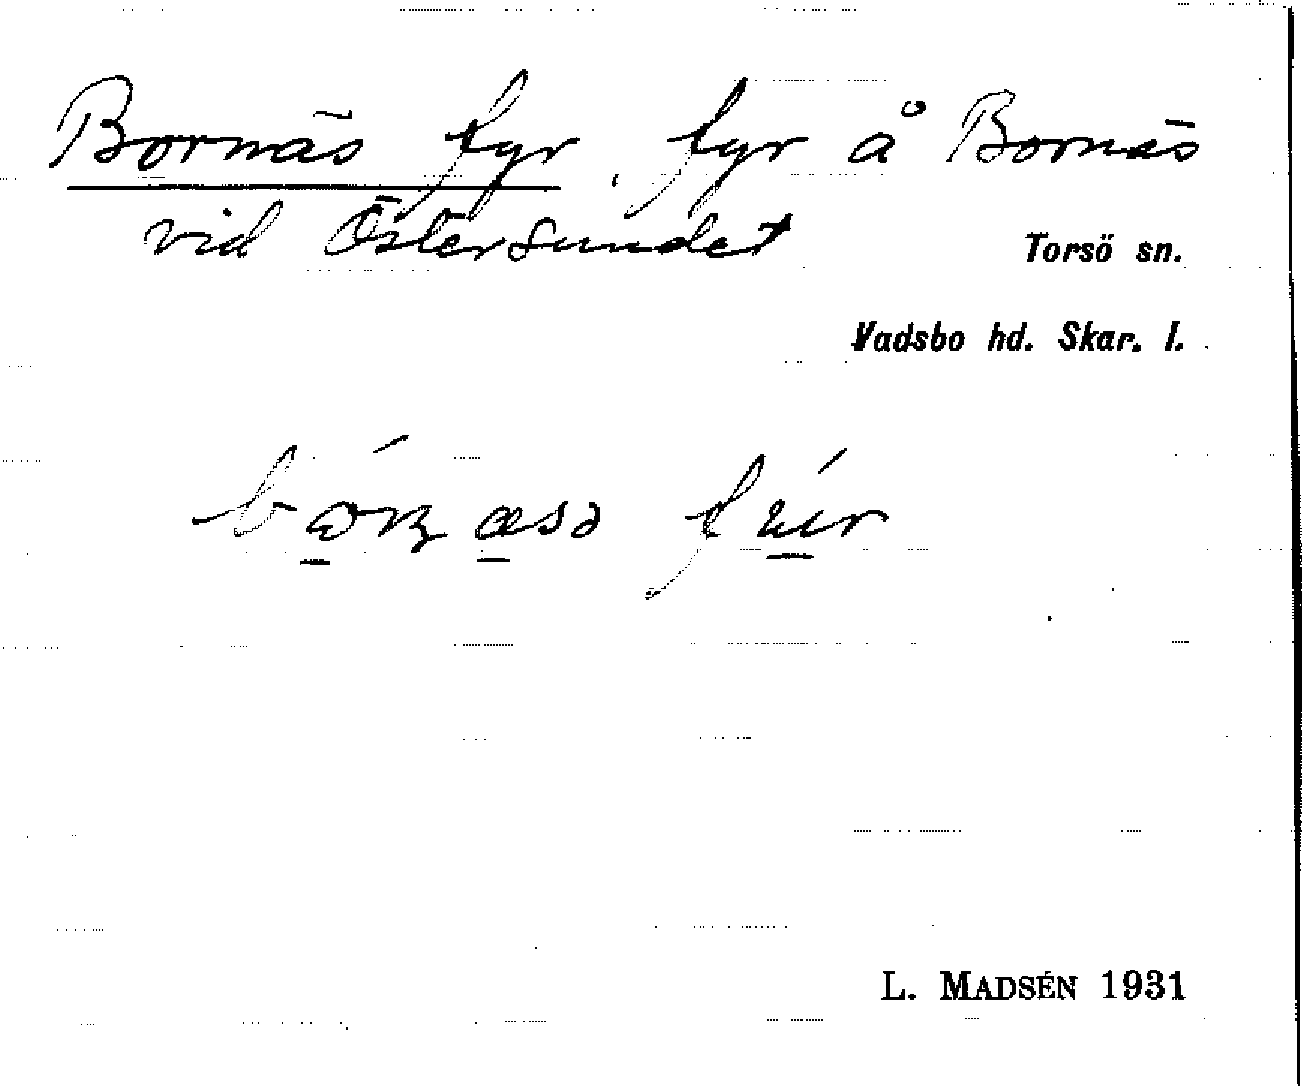 Bornäs fyr, fyr å Bornäs
vid Östersundet
Torsö sn.
Vadsbo hd. Skar. l.
L. MADSÉN 1931